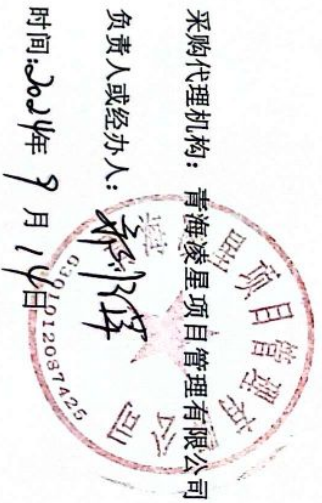 采购代理机构：青海凌星项目管理有限公司
负责人或经办人：
时间:2024年9月14日
项目管理有限公司
6301012087425